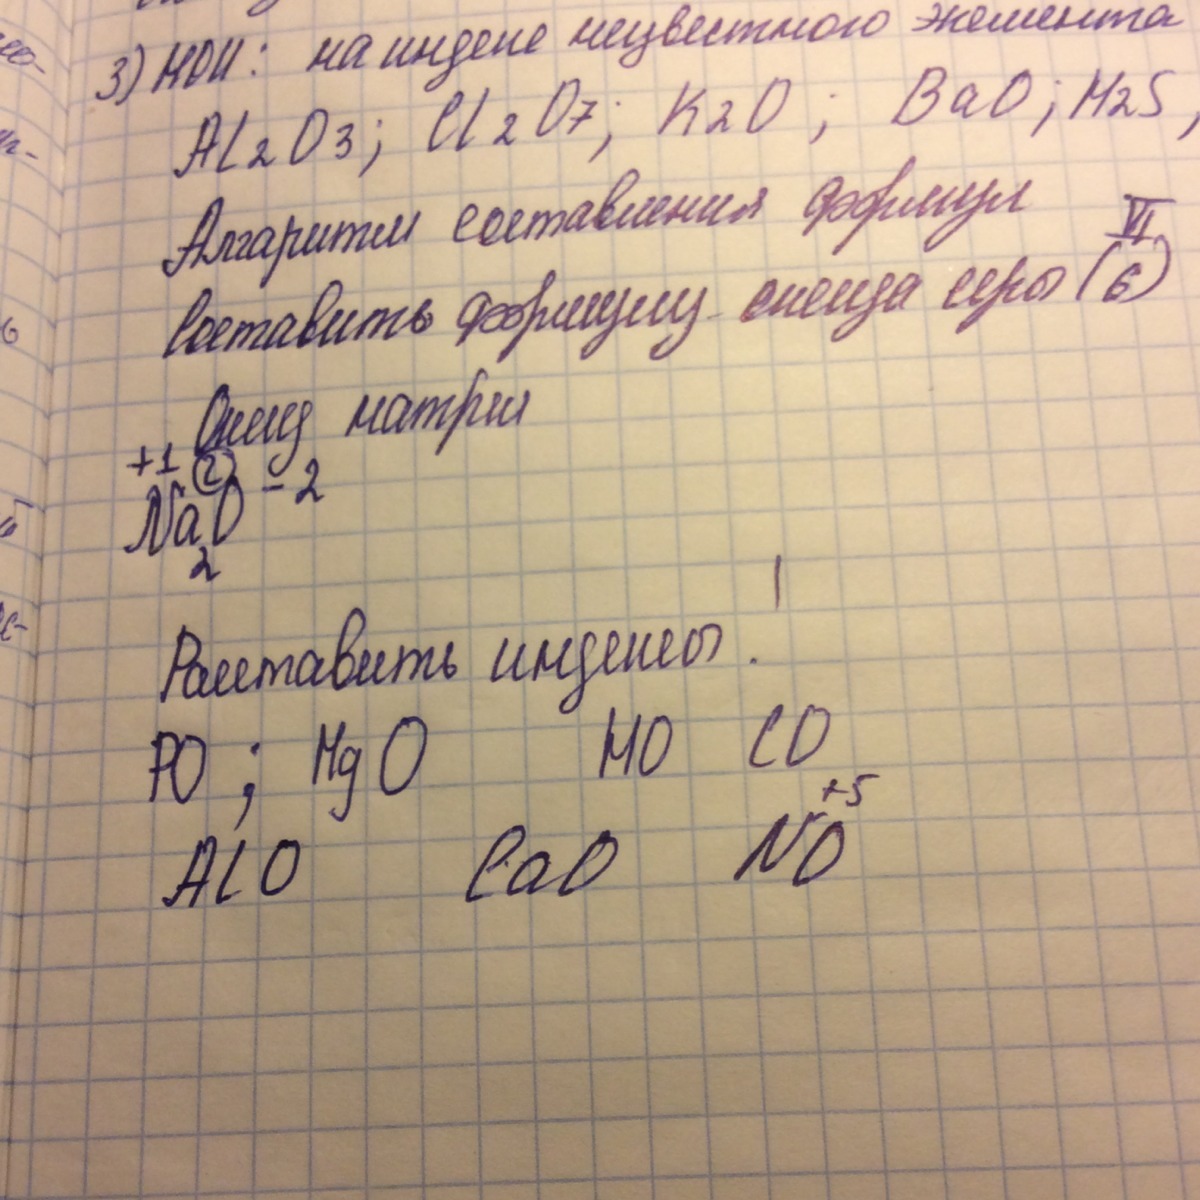 3) НОК: на индекс неизвестного элемента
Al2O3; Cl2O7; K2O; BaO; H2S,
Алгаритм составления формул
VI
Составить формулу оксида серы (6)
Оксид натрия
+1 (2) -2
NaO
2
Расставить индексы.
PO; MgO HO CO
+5
AlO CaO NO